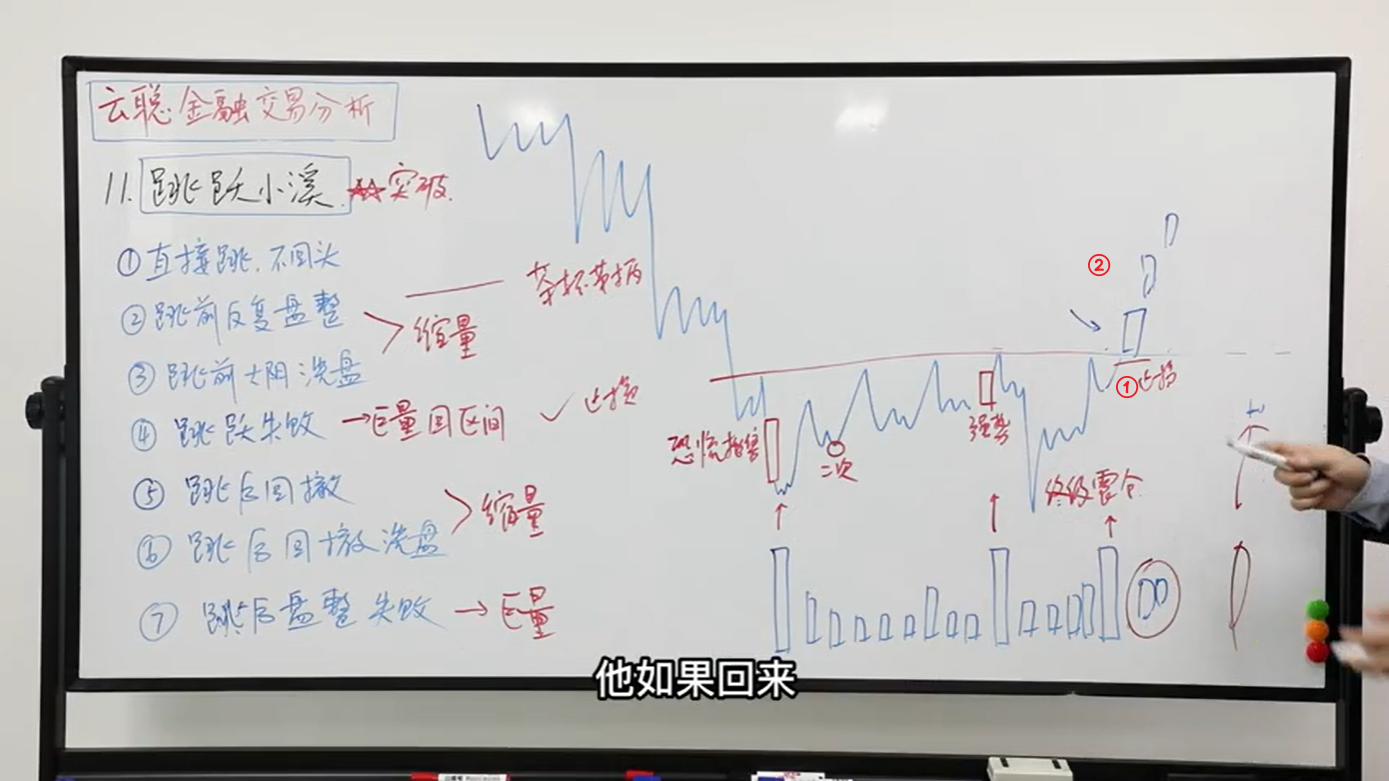 云聪金融交易分析
11. 跳跃小溪 突破.
①直接跳.不回头
②跳前反复盘整
③跳前大阴洗盘
缩量
茶杯带柄
④跳跃失败→巨量回区间 ✓止损
⑤跳后回撤
⑥跳后回撤洗盘
缩量
⑦跳后盘整失败→巨量
恐慌抛售
二次
强势
终极震仓
②
①止损
他如果回来